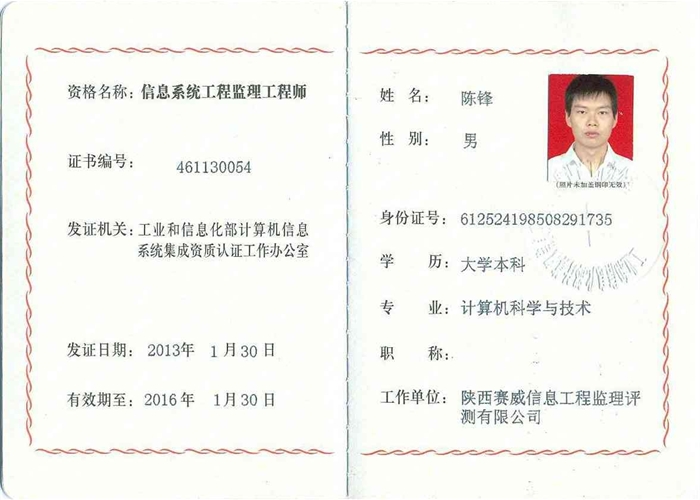 资格名称：信息系统工程监理工程师
证书编号： 461130054
发证机关：工业和信息化部计算机信息
系统集成资质认证工作办公室
发证日期： 2013年 1月30日
有效期至： 2016年 1月30日
姓 名： 陈锋
性 别： 男
(照片未加盖钢印无效)
身份证号： 612524198508291735
学 历： 大学本科
专 业： 计算机科学与技术
职 称：
工作单位： 陕西赛威信息工程监理评
测有限公司